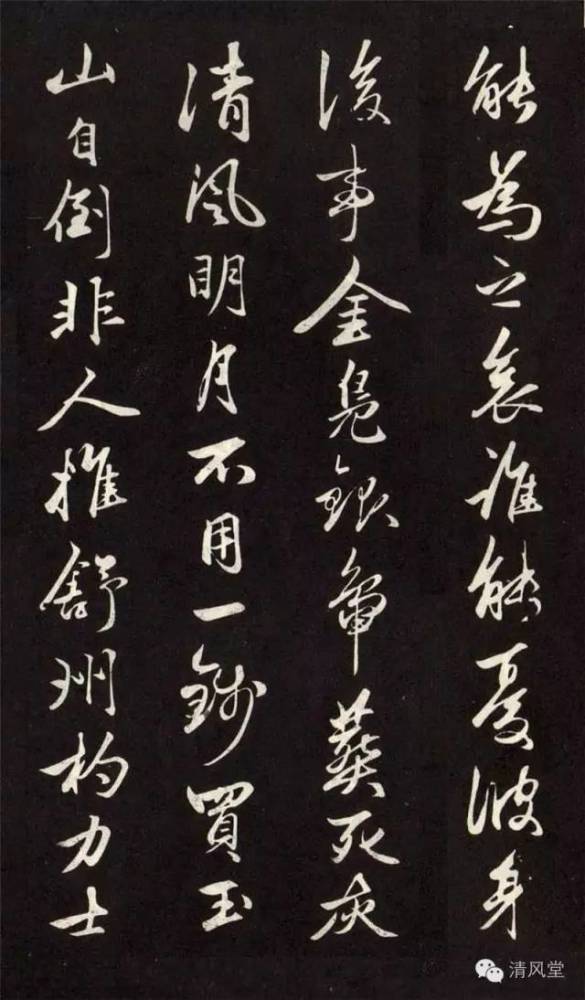 能為之哀誰能憂彼身
後事金鳧銀𨿽葬死灰
清風明月不用一錢買玉
山自倒非人推舒州杓力士
清风堂